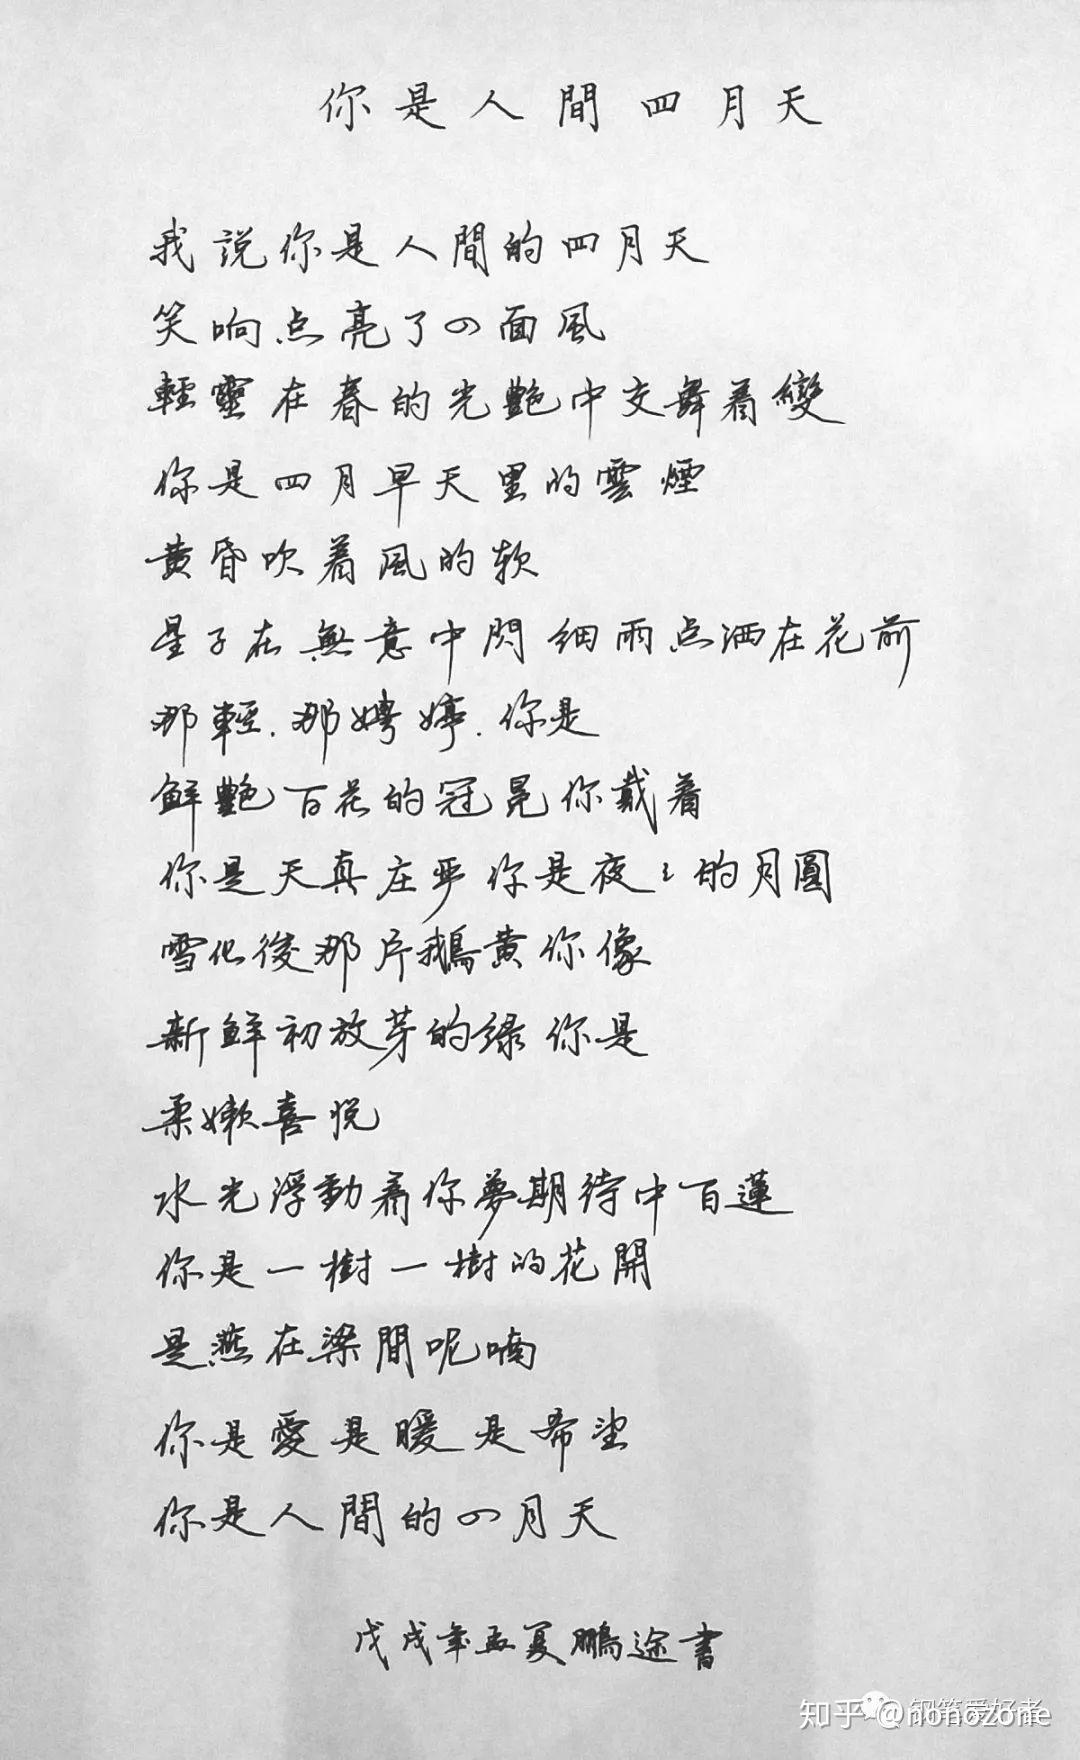 你是人間四月天
我説你是人間的四月天
笑响点亮了四面風
輕靈在春的光艷中交舞着變
你是四月早天里的雲煙
黄昏吹着風的软
星子在無意中閃细雨点洒在花前
那輕.那娉婷.你是
鲜艷百花的冠冕你戴着
你是天真庄严你是夜々的月圓
雪化後那片鵝黄你像
新鲜初放芽的绿你是
柔嫩喜悦
水光浮動着你夢期待中百蓮
你是一樹一樹的花開
是燕在梁間呢喃
你是愛是暖是希望
你是人間的四月天
戊戌年孟夏鵬途書
知乎 @nonozone
钢笔爱好者